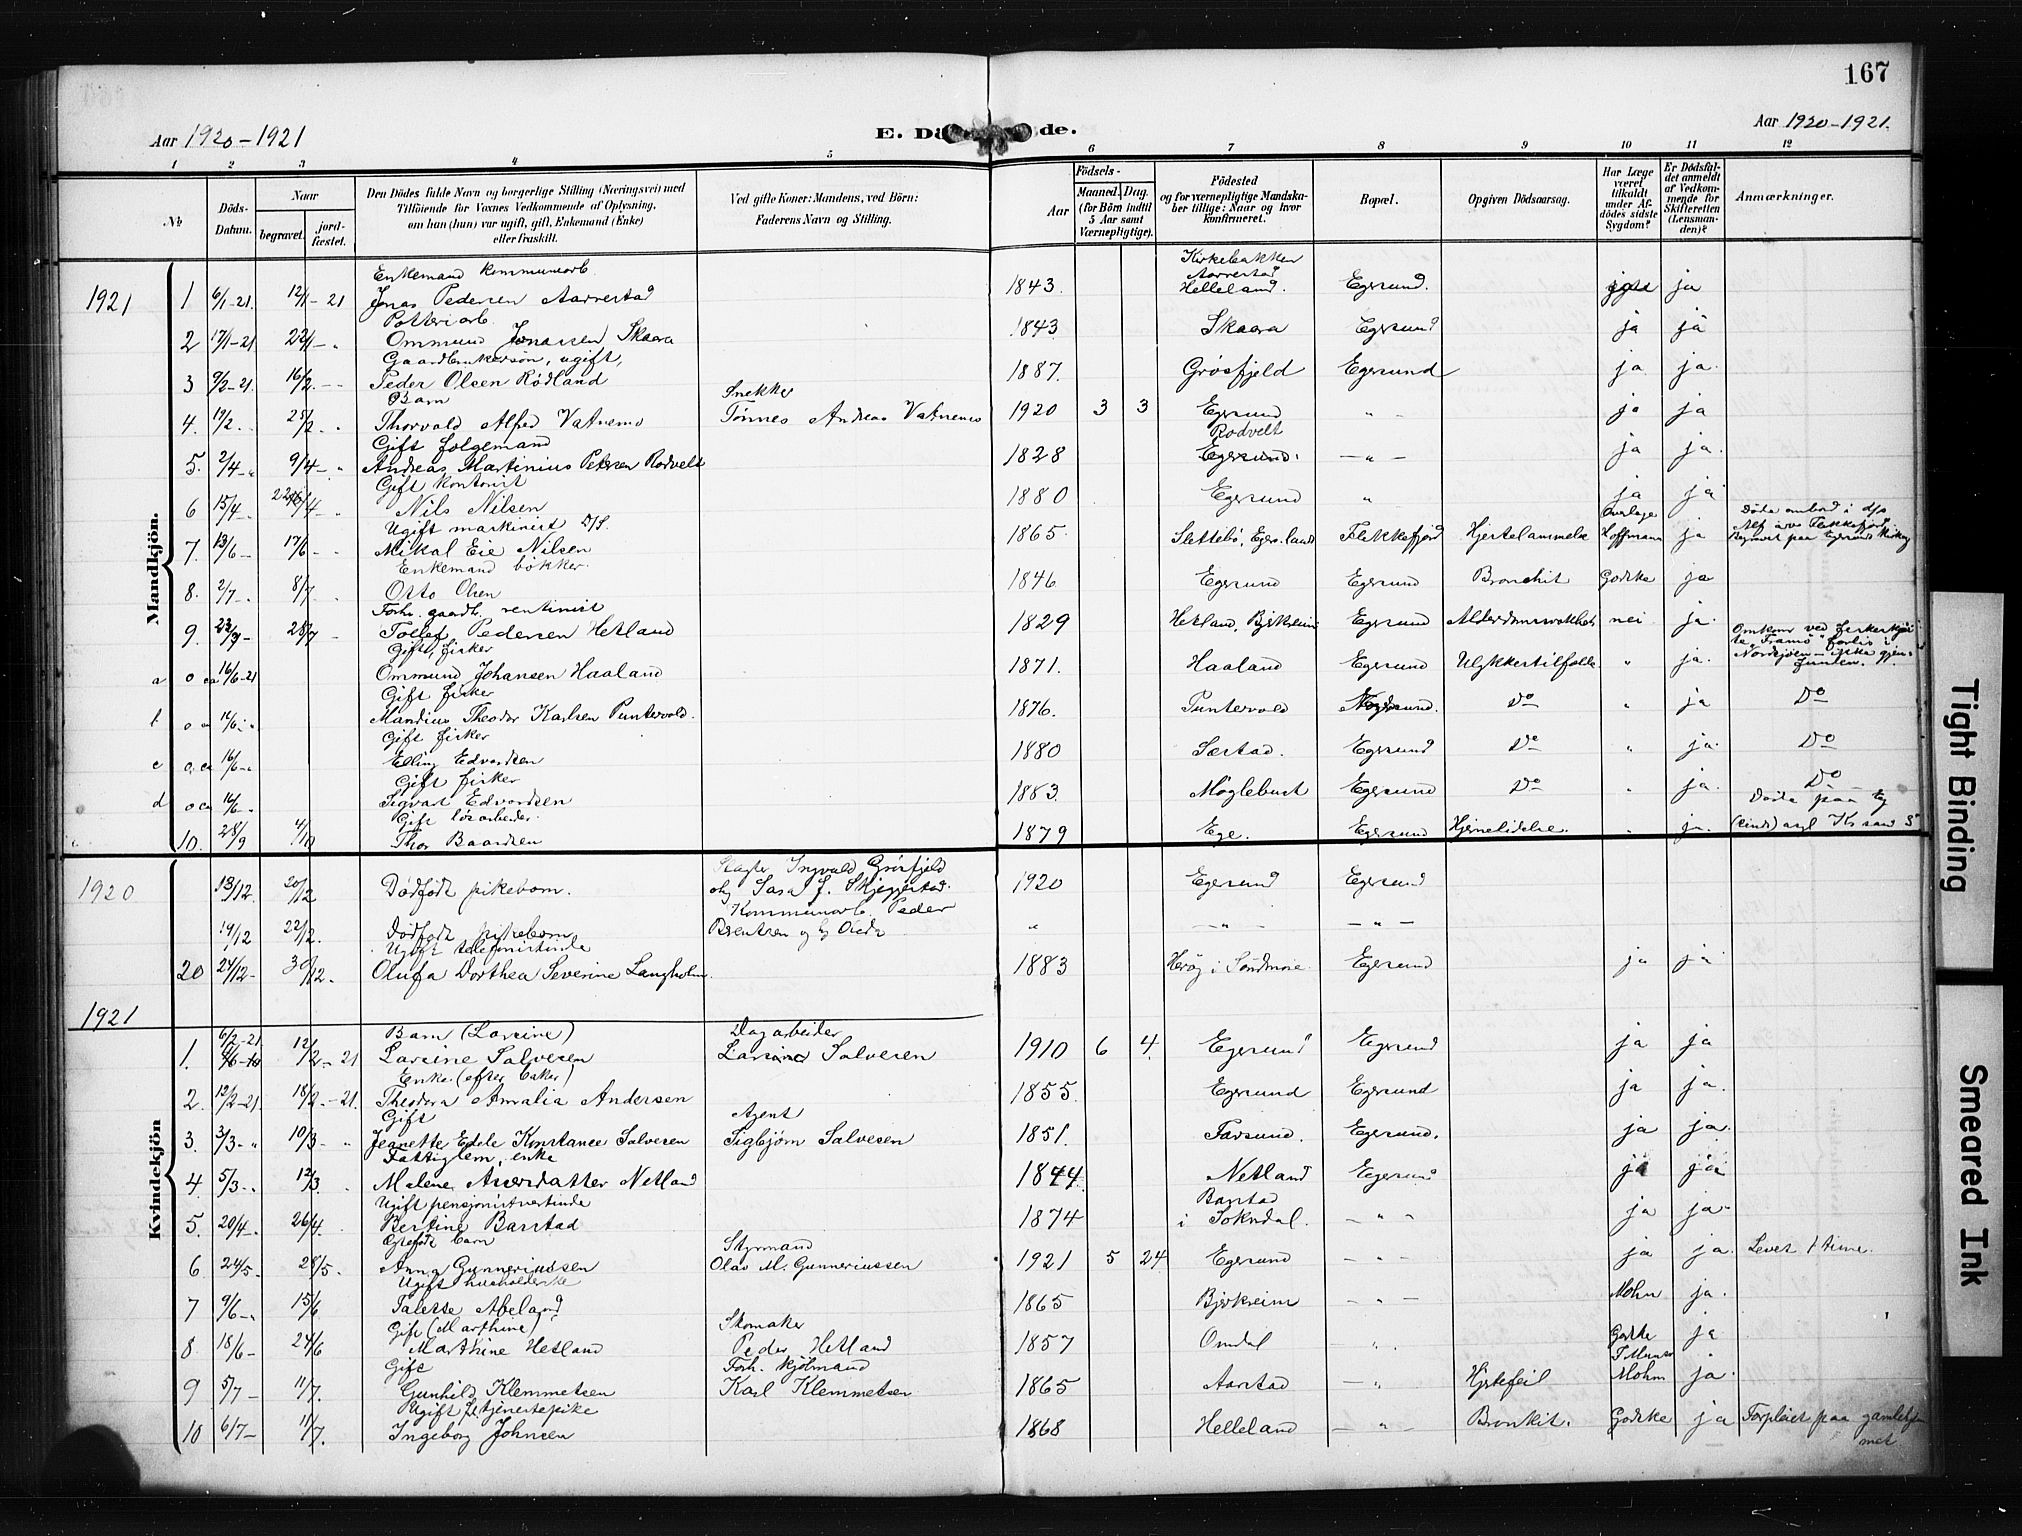 167
Aar 1920-1921
E. Dö de.
Aar 1920-1921.
1 2 3 4 5 6 7 8 9 10 11 12
No.
Döds-Datum.
Naar
begravet.
jord-fæstet.
Den Dödes fulde Navn og borgerlige Stilling (Næringsvei) med
Tilföiende for Voxnes Vedkommende af Oplysning,
om han (hun) var ugift, gift, Enkemand (Enke)
eller fraskilt.
Ved gifte Koner: Mandens, ved Börn:
Faderens Navn og Stilling.
Aar
Födsels-
Maaned. Dag.
(for Börn indtil
5 Aar samt
Værnepligtige).
Födested
og for værnepligtige Mandska-
ber tillige: Naar og hvor
konfirmeret.
Bopæl.
Opgiven Dödsaarsag.
Har Læge
været
tilkaldt
under Af-
dödes sidste
Sygdom?
Er Dödsfal-
det anmeldt
af Vedkom-
mende for
Skifteretten
(Lensman-
den)?
Anmærkninger.
Mandkjön.
1921
Enkemand kommunearb. Kirkebakken
Aarrestad
1 6/1-21. 12/1-21 Jonas Pedersen Aarrestad 1843. Helleland. Egersund. ja
Potteriarb.
2 17/1-21 22/1-" Ommund Jonassen Skaara 1843 Skaara Egersund ja ja
Gaardbrukersøn, ugift,
3 9/2-21. 16/2.-- Peder Olsen Rødland 1887. Grøsfjeld Egersund ja ja.
Barn Snekker
4. 19/2. 25/2. Thorvald Alfred Vatnemo Tønnes Andreas Vatnemo 1920 3 3 Egersund " - ja ja
Gift folgemand Rodvelt
5. 2/4-" 9/4-" Andreas Martinius Petersen Rodvelt 1828 Egersund. -"- ja ja.
Gift kontorist
6 15/4-. Nils Nilsen 1880 Egersund " ja ja
Ugift maskinist D/S.
7. 13/6- 17/6-. Mikal Eie Nilsen 1865. Slettebø, Egers.land Flekkefjord Hjertelammelse Hoffmann ja Døde ombord i d/s
Alf Flekkefjord
Begravet paa Egersunds Kirkeg.
Enkemand bøkker.
8. 2/7-. 8/7. Otto Olsen 1846 Egersund Egersund Bronchit Godske ja
Forh. gaardb. rentinist
9. 28/7 - Tollef Pedersen Hetland 1829 Hetland, Bjerkreim Egersund nei ja.
Gift, fisker
a o ca 16/6-21 Ommund Johansen Haaland 1871. Haaland Egersund Ulykkestilfælle " ja. Omkom ved fiskerskjøi-
forlis i
Nordsjøen - ikke gjen-
funden.
Gift fisker
o 16/6 Mandius Theodor Karlsen Puntervold. 1876. Puntervold Do " ja Do
Gift fisker
c o. ca 16/6 Elling Edvardsen 1880 Sæstad. Egersund Do " ja. Do
Gift fisker
d o ca 16/6-. Sigvart Edvardsen 1883. Møglebust Egersund Do " ja. Do
Gift løsarbeider.
10. 28/9 4/10 Thor Baardsen 1879 Ege. Egersund Hjernelidelse. " ja. Døde paa
Kvindekjön
1920
Slagter Ingvald Grøsfjeld
13/12. 20/12 Dødfødt pikebarn. 1920 Egersund Egersund
Kommunearb. Peder
19/12 22/12. Dødfødt pikebarn " -"- -"-
Ugift telefonistinde
20 24/12- 30/12. Olufa Dorthea Severine Langholm. 1883 Herøy i Søndmøre. Egersund ja ja
1921
6/2-21 Barn (Larsine) Dagarbeider
1. 12/2-21 Larsine Salvesen Salvesen 1910 6 4. Egersund Egersund ja ja
Enke (efter baker)
2. 12/2-21. 18/2.-21. Theodora Amalia Andersen 1855. Egersund Egersund ja ja.
Gift Agent
3. 3/3-" 10/3-" Jeanette Edele Konstance Salvesen Sigbjørn Salvesen 1851. Farsund. Egersund. ja ja.
Fattiglem, enke
4. 5/3-. 12/3. Malene Netland 1844. Netland Egersund ja ja
Ugift pensjonistvertinde Barstad
5. 20/4-. 26/4. Bertine Barstad 1874 i Sokndal. -"- ja ja-
Egtefødt barn Styrmand
6 24/5. 28/5. Anna Gunneriussen Olav M. Gunneriussen 1921 5 24 Egersund -"- ja ja. Levet 1 time.
Ugift husholderske
7 9/6-" 15/6 Talette Abeland 1865 Bjerkreim -"- Mohn ja.
Gift (Marthine) Skomaker
8. 18/6- 24/6 Marthine Hetland Peder Hetland 1857 Omdal -". Godske ja
Gift Forh. kjølmand
9 5/7- 11/7. Gunhild Klemmetsen Karl Klemmetsen 1865 Aarstad -". Hjertefeil Mohm ja.
Ugift tjenestepike
10 6/7- 11/7. Ingeborg Johnsen 1868 Helleland -"- Bronkit. Godske ja Forpleiet paa gamlehjem-
met
Tight Binding
Smeared Ink